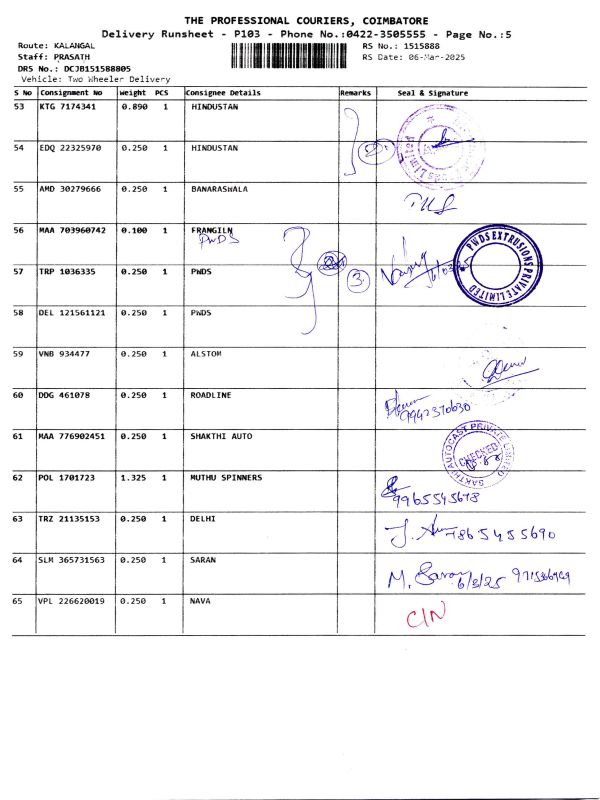 THE PROFESSIONAL COURIERS, COIMBATORE
Delivery Runsheet - P103 - Phone No.:0422-3505555 - Page No.:5
Route: KALANGAL RS No.: 1515888
Staff: PRASATH RS Date: 06-Mar-2025
DRS No.: DCJB151588805
Vehicle: Two Wheeler Delivery
S No Consignment No Weight PCS Consignee Details Remarks Seal & Signature
53 KTG 7174341 0.890 1 HINDUSTAN
54 EDQ 22325970 0.250 1 HINDUSTAN
55 AMD 30279666 0.250 1 BANARASWALA
56 MAA 703960742 0.100 1 FRANGILN
PWDS
PWDS EXTRUSIONS PRIVATE LIMITED
57 TRP 1036335 0.250 1 PWDS 3
58 DEL 121561121 0.250 1 PWDS
59 VNB 934477 0.250 1 ALSTOM
60 DDG 461078 0.250 1 ROADLINE
9942370630
61 MAA 776902451 0.250 1 SHAKTHI AUTO
SAKTHI AUTOCAST PRIVATE LIMITED
CHECKED
62 POL 1701723 1.325 1 MUTHU SPINNERS
9965545678
63 TRZ 21135153 0.250 1 DELHI
7865455690
64 SLM 365731563 0.250 1 SARAN
M. Saran 6/3/25
65 VPL 226620019 0.250 1 NAVA
C/N